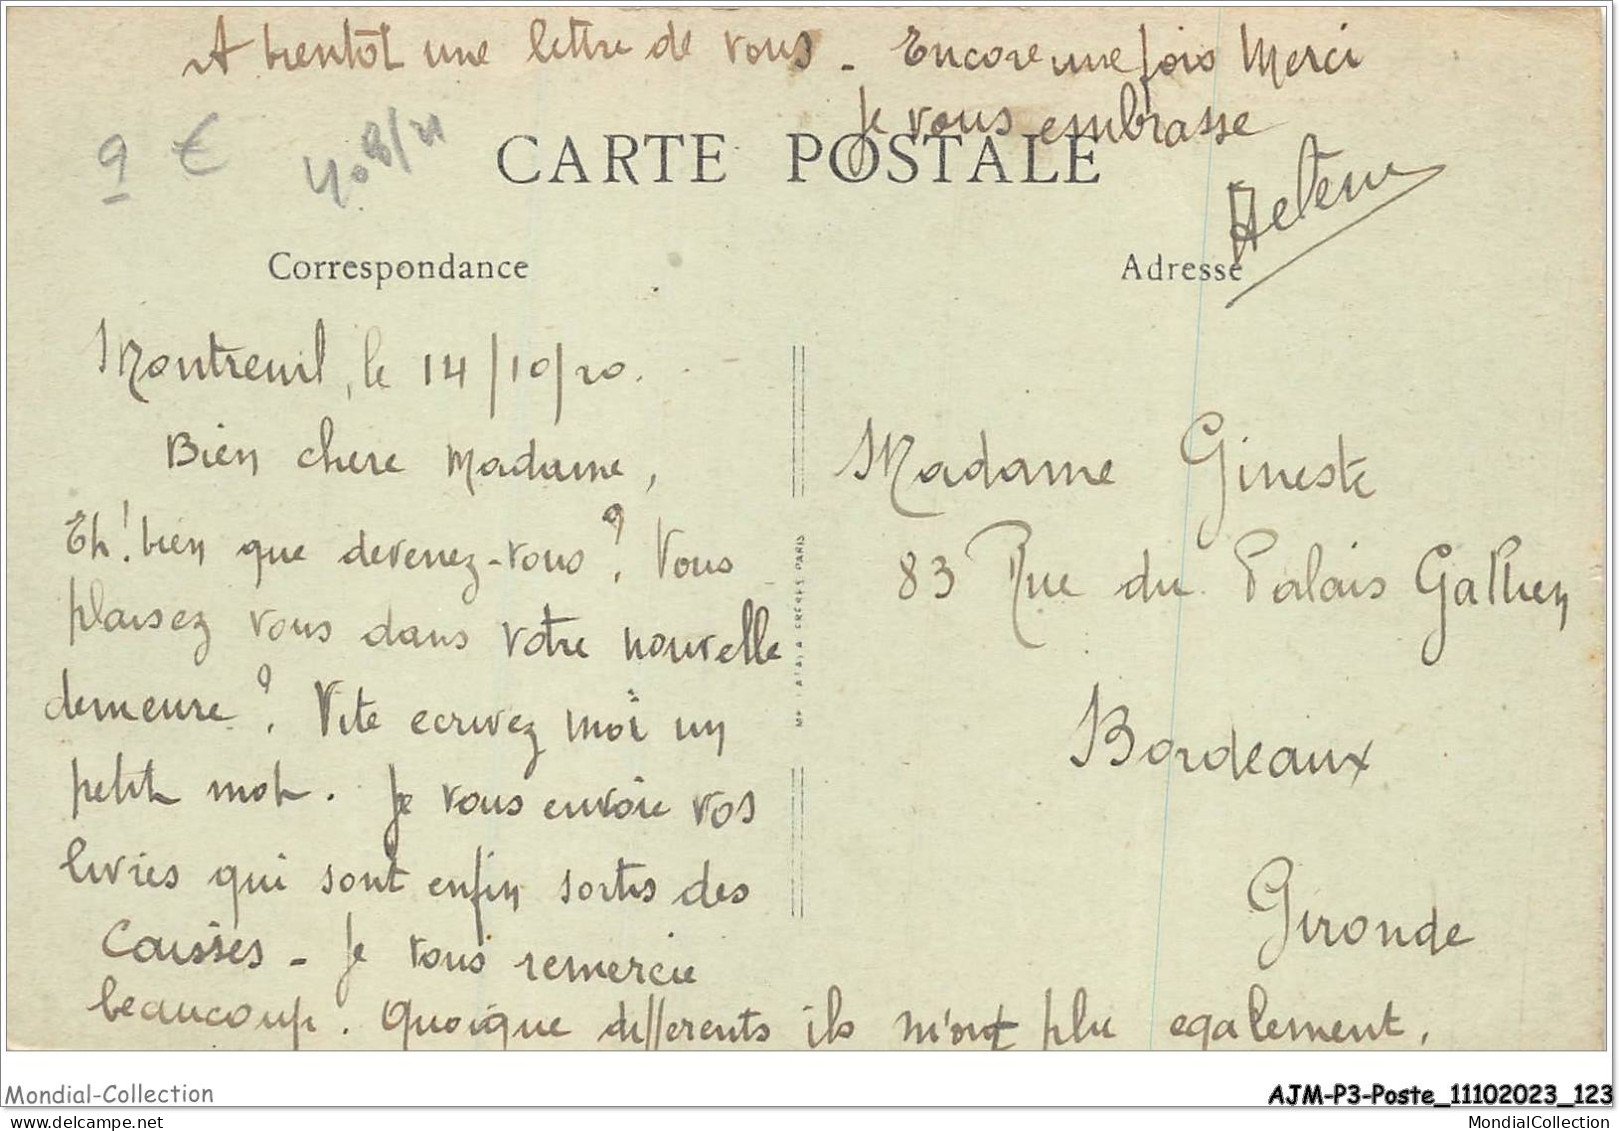 A bientôt une lettre de vous - Encore une fois Merci
Je vous embrasse
Helene
9 €
CARTE POSTALE
Correspondance
Adresse
Montreuil, le 14/10/20.
Bien chere Madame,
Eh! bien que devenez-vous? Vous
plaisez vous dans votre nouvelle
demeure? Vite ecrivez moi un
petit mot. Je vous envoie vos
livres qui sont enfin sortis des
Caisses - Je vous remercie
beaucoup. Quoique differents ils m'ont plu egalement.
Madame Gineste
83 Rue du Palais Gallien
Bordeaux
Gironde
PARIS
Mondial-Collection
AJM-P3-Poste_11102023_123
mondial-collection.com
MondialCollection